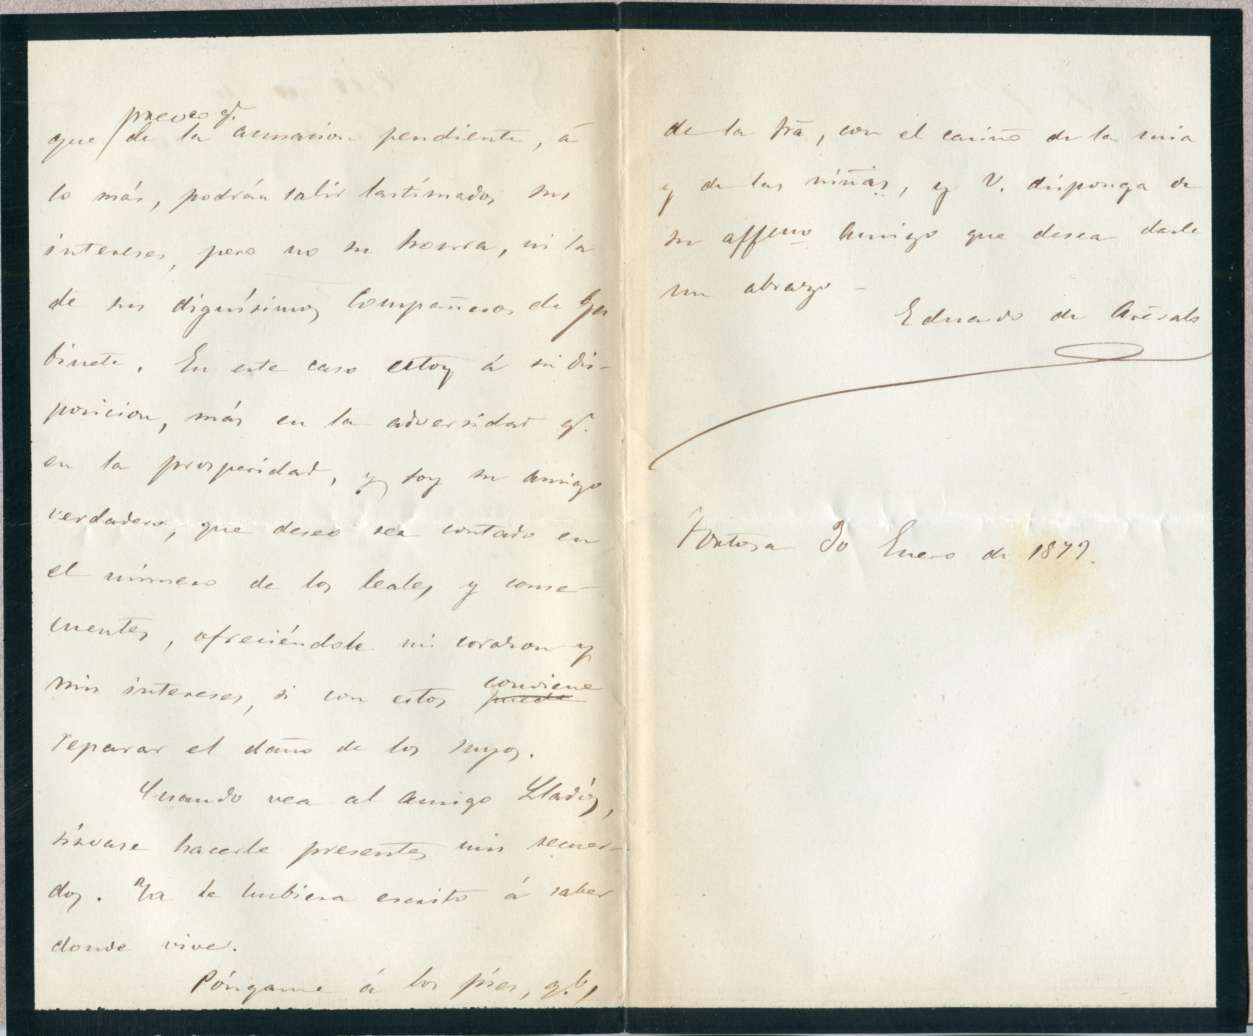 preveo q.
que de la acusacion pendiente, á
lo más, podrán salir lastimados sus
intereses, pero no su honra, ni la
de sus dignísimos Compañeros de Ga
binete. En este caso estoy á su dis-
posicion, más en la adversidad q.
en la prosperidad, y soy su amigo
verdadero, que deseo ser contado en
el número de los leales y conse-
cuentes, ofreciéndole mi corazon y
mis intereses, si con estos conviene
reparar el daño de los suyos.
Cuando vea al amigo Lladós,
sírvase hacerle presentes mis recuer-
dos. Ya le hubiera escrito á saber
donde vive.
Póngame á los pies, q. b.,
de la Sra, con el cariño de la mia
y de las niñas, y V. disponga de
su affmo amigo que desea darle
un abrazo -
Eduardo de
Tortosa 30 Enero de 1879.